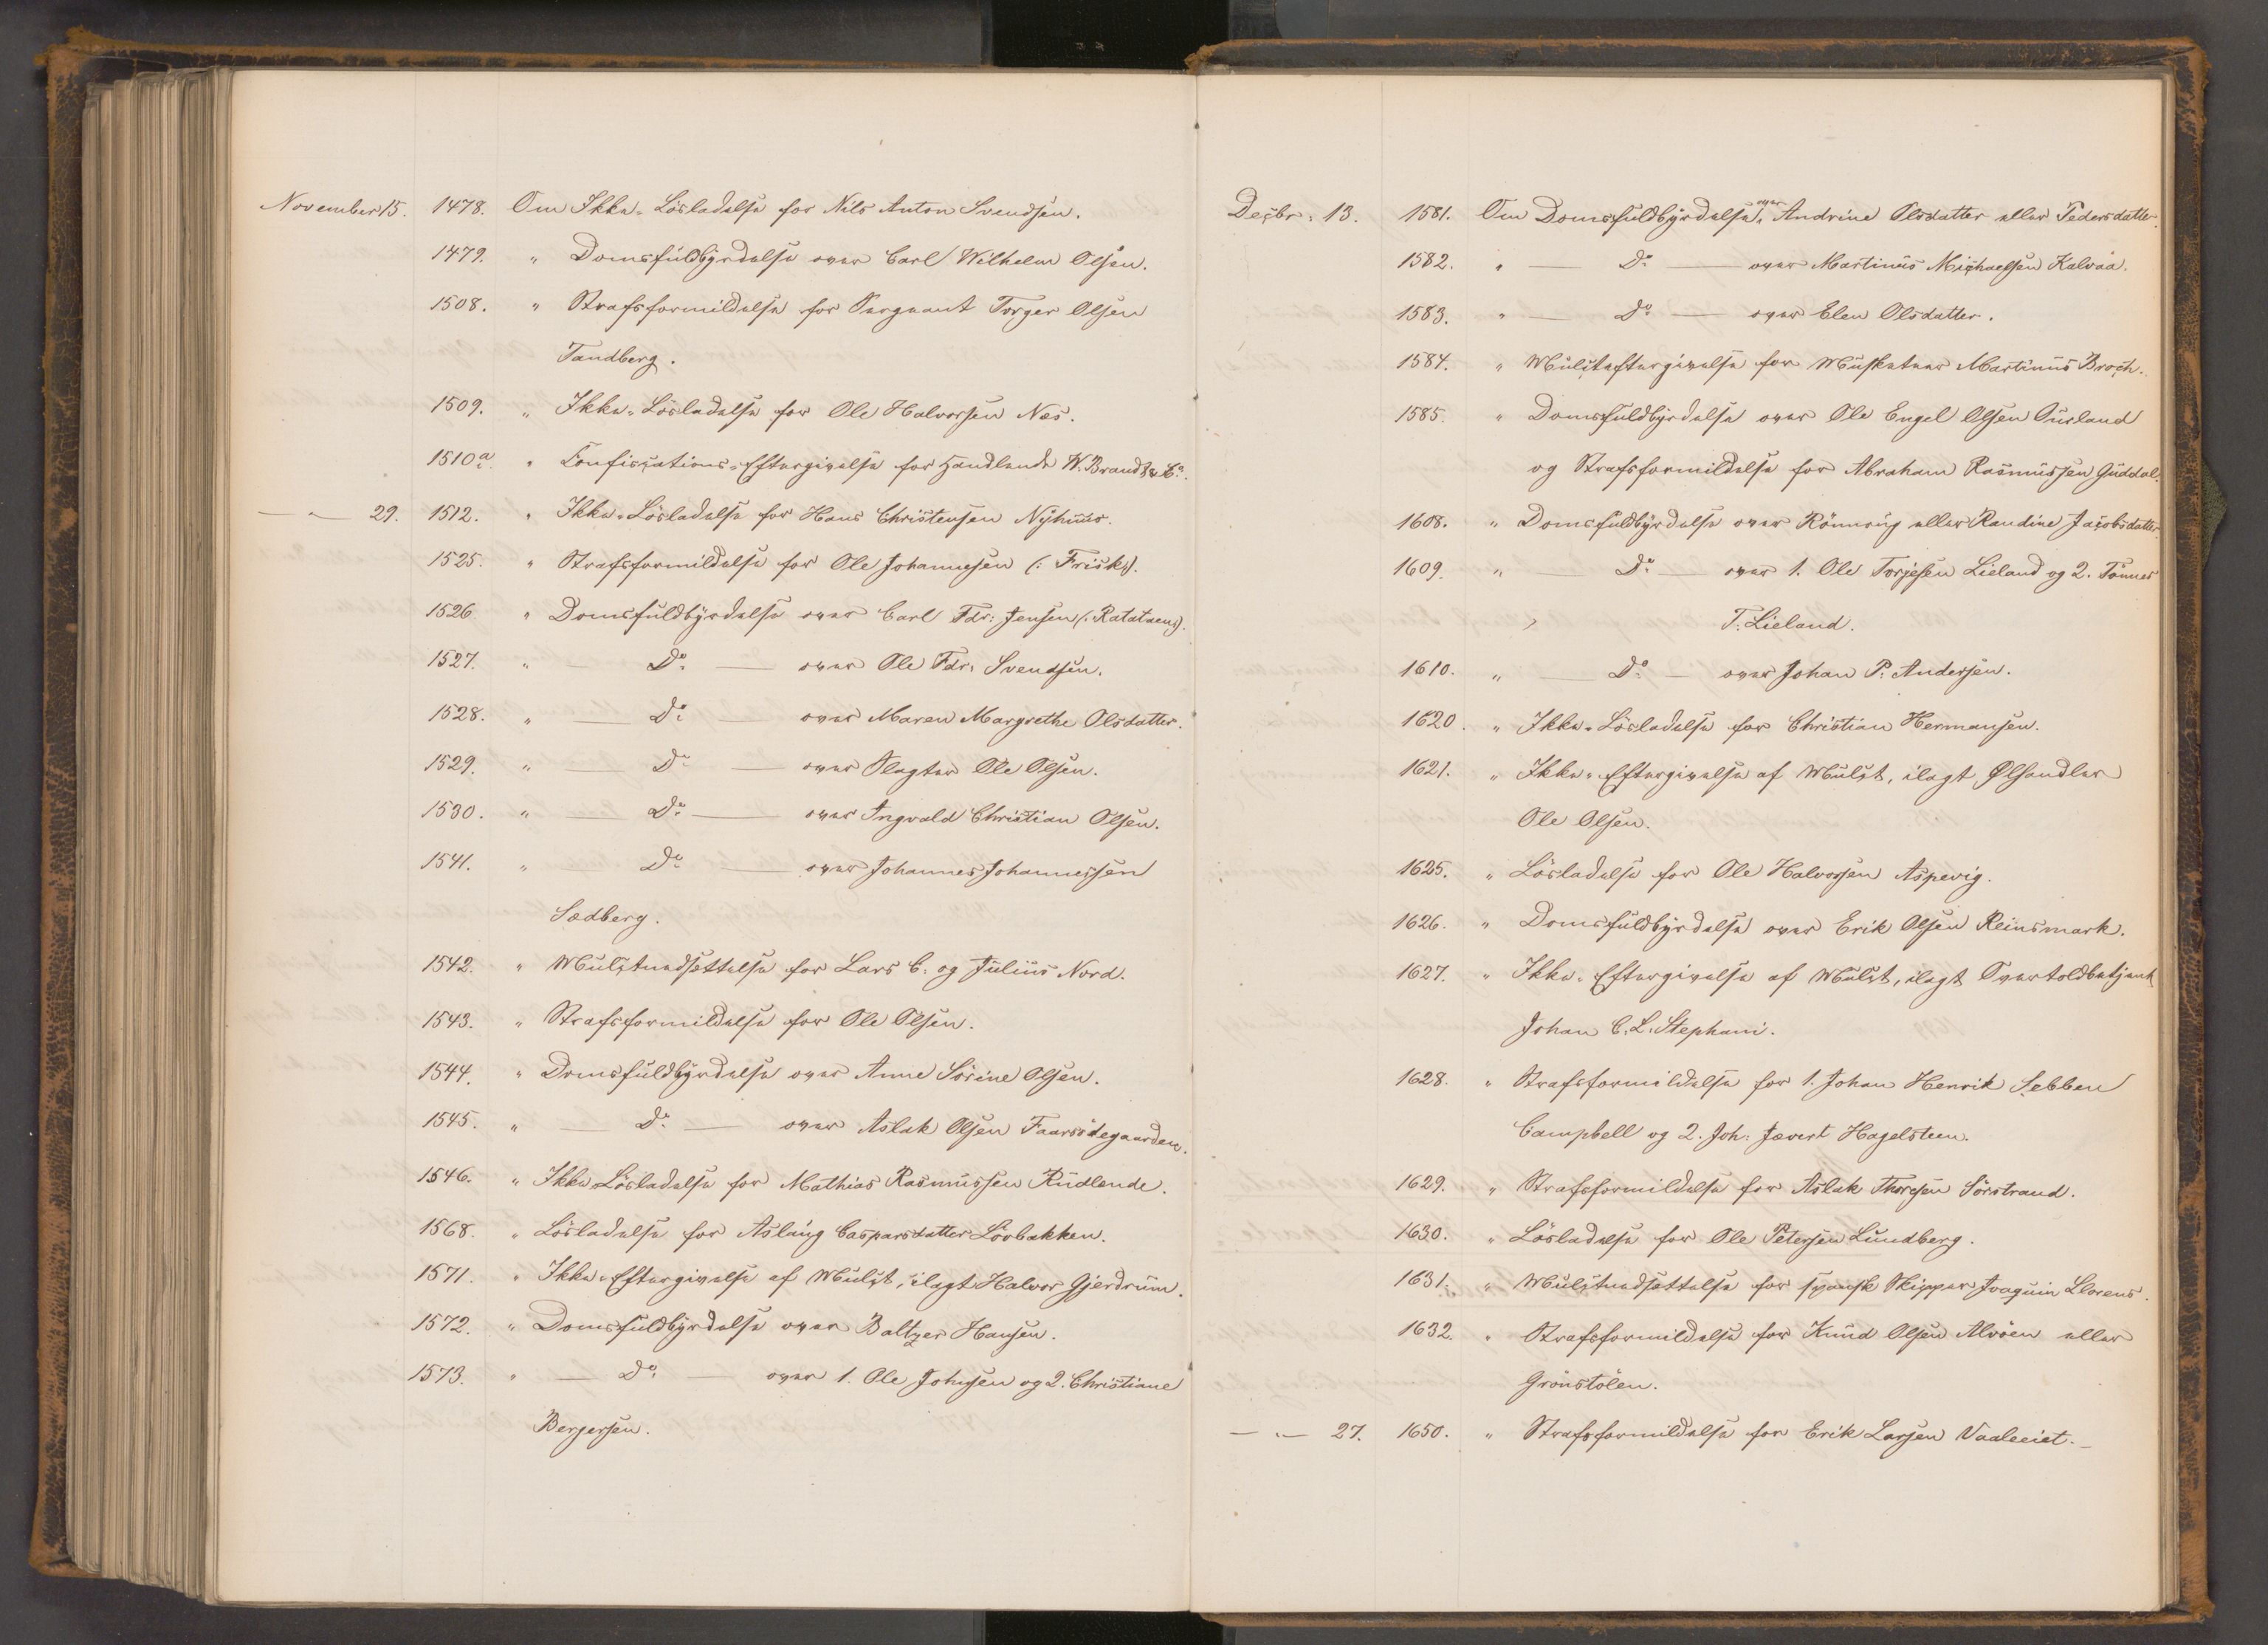 November 15. 1478. Om Ikke-Løsladelse for Nils Anton Svendsen.
1479. " Domsfuldbyrdelse over Carl Wilhelm Olsen.
1508. " Strafsformildelse for Sergeant Torger Olsen
Tandberg.
1509. " Ikke-Løsladelse for Ole Halvorsen Næs.
1510a " Confiscations-Eftergivelse for Handlende W. Brandt & Co.
— " — 29. 1512. " Ikke-Løsladelse for Hans Christensen Nÿhuus.
1525. " Strafsformildelse for Ole Johannesen (: Frisk:).
1526 " Domsfuldbyrdelse over Carl Fdr: Jensen (: Ratataens).
1527. " — Do — over Ole Fdr. Svendsen.
1528. " — Do — over Maren Margrethe Olsdatter.
1529. " — Do — over Slagter Ole Olsen.
1530. " — Do — over Ingvald Christian Olsen.
1541. " — Do — over Johannes Johannessen
Sædberg.
1542. " Mulctnedsættelse for Lars C. og Julius Nord.
1543. " Strafsformildelse for Ole Olsen.
1544. " Domsfuldbyrdelse over Anne Sørine Olsen.
1545. " — Do — over Aslak Olsen Faarødegaarden.
1546. " Ikke Løsladelse for Mathias Rasmussen Rudlende.
1568. " Løsladelse for Aslaug Caspersdatter Lövbakken.
1571. " Ikke-Eftergivelse af Mulct, ilagt Halvor Gjerdrum.
1572. " Domsfuldbyrdelse over Baltzer Hansen.
1573. " — Do — over 1. Ole Johnsen og 2. Christiane
Bergersen.
Decbr: 13. 1581. Om Domsfuldbyrdelse over Andrine Olsdatter eller Pedersdatter.
1582. " — Do — over Martinus Michaelsen Kalvaa.
1583. " — Do — over Elen Olsdatter.
1584. " Mulcteftergivelse for Musketeer Martinus Broch.
1585. " Domsfuldbyrdelse over Ole Engel Olsen Ousland
og Strafsformildelse for Abraham Rasmussen Guddal.
1608. " Domsfuldbyrdelse over Rönnoug eller Randine Jacobsdatter.
1609. " — Do — over 1. Ole Torjesen Lieland og 2. Tönnes
T. Lieland.
1610. " — Do — over Johan P. Andersen.
1620. " Ikke-Løsladelse for Christian Hermansen.
1621. " Ikke-Eftergivelse af Mulct, ilagt Ølhandler
Ole Olsen.
1625. " Løsladelse for Ole Halvorsen Aspevig.
1626. " Domsfuldbyrdelse over Erik Olsen Reinsmark.
1627. " Ikke-Eftergivelse af Mulct, ilagt Overtoldbetjent
Johan C. L. Stephani.
1628. " Strafsformildelse for 1. Johan Henrik Sebben
Campbell og 2. Joh: Jævert Hagelsteen.
1629. " Strafsformildelse for Aslak Thoresen Sörstrand.
1630. " Løsladelse for Ole Petersen Lundberg.
1631. " Mulctnedsættelse for spansk Skipper Joaquin Llorens.
1632. " Strafsformildelse for Knud Olsen Alvöen eller
Grönstölen.
— " — 27. 1650. " Strafsformildelse for Erik Larsen Vaaleeiet. —